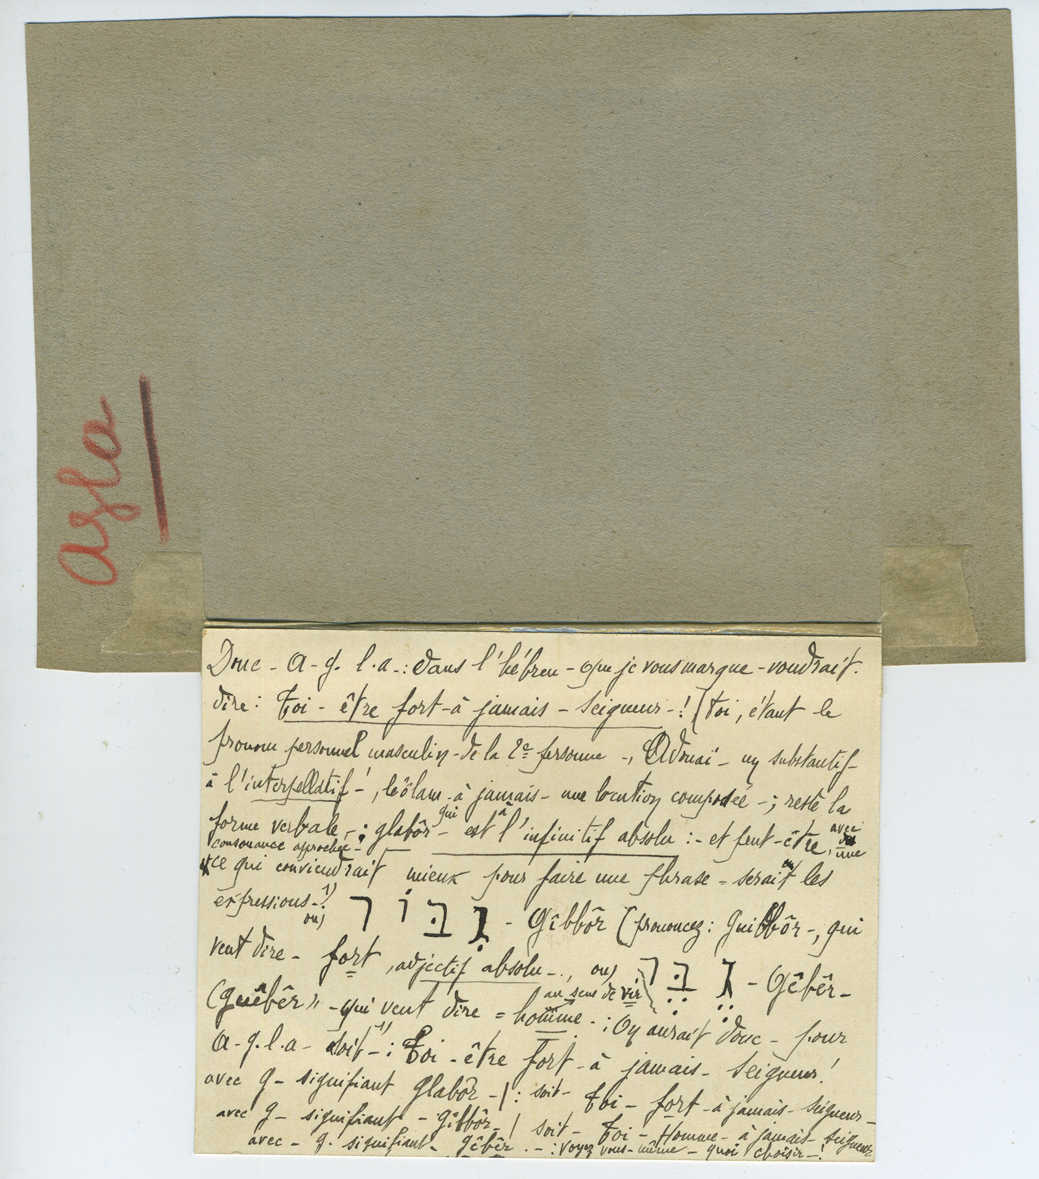 agla
Donc - A-g. l.a.: dans l'hébreu - que je vous marque - voudrait
dire: Toi - être fort - à jamais - Seigneur - ! (Toi, étant le
pronom personnel masculin - de la 2e personne -, Adonaï - un substantif -
à l'interpellatif! -, leôlam - à jamais - une locution composée - ; reste la
forme verbale - : glabôr - qui est à l'infinitif absolu : - et peut-être, avec une
consonance approchée -
ce qui conviendrait mieux pour faire une phrase - serait les
expressions - : 1) ou) גִּבּוֹר - Gîbbôr (prononcez: Guibbôr -, qui
veut dire - fort, adjectif absolu - , ou) גֶּבֶר - Gêbêr -
(guêbêr) - qui veut dire = homme - au sens de vir : Il y aurait donc - pour
A-g.l.a - soit - 1) : Toi - être fort - à jamais - Seigneur!
avec g - signifiant glabôr - ! : soit - Toi - fort - à jamais - Seigneur -
avec g - signifiant - Gîbbôr - ! soit - Toi - Homme - à jamais - Seigneur
avec - g - signifiant - gêbêr . - : Voyez vous-même - quoi choisir - !